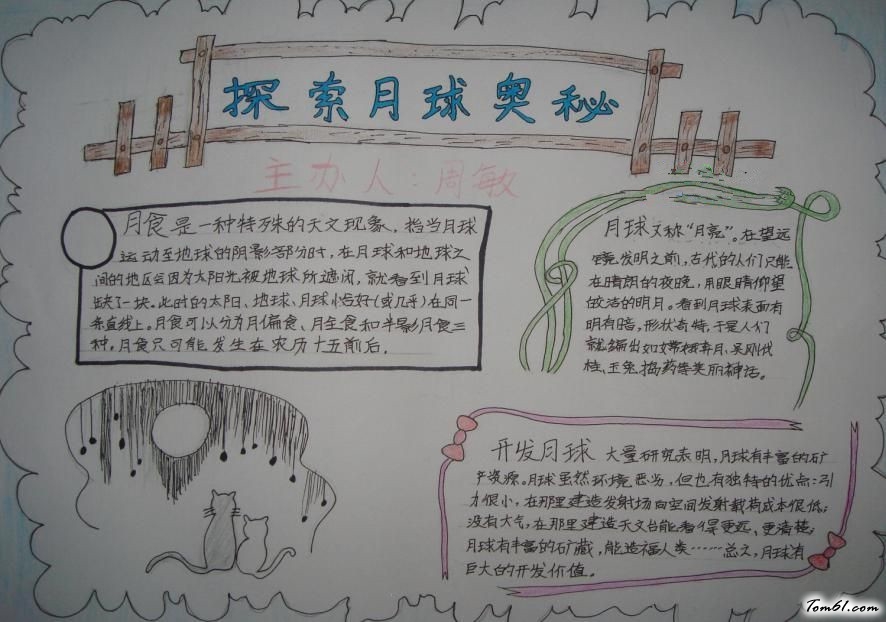 探索月球奥秘
主办人：周敏
月食是一种特殊的天文现象，指当月球
运动至地球的阴影部分时，在月球和地球之
间的地区会因为太阳光被地球所遮闭，就看到月球
缺了一块。此时的太阳、地球、月球恰好（或几乎）在同一
条直线上。月食可以分为月偏食、月全食和半影月食三
种，月食只可能发生在农历十五前后。
月球又称“月亮”。在望远
镜发明之前，古代的人们只能
在晴朗的夜晚，用眼睛仰望
皎洁的明月。看到月球表面有
明有暗，形状奇特，于是人们
就编出如嫦娥奔月、吴刚伐
桂、玉兔捣药等美丽神话。
开发月球 大量研究表明，月球有丰富的矿
产资源。月球虽然环境恶劣，但也有独特的优点：引
力很小，在那里建造发射场向空间发射载荷成本很低；
没有大气，在那里建造天文台能看得更远、更清楚；
月球有丰富的矿藏，能造福人类……总之，月球有
巨大的开发价值。
Tom61.com